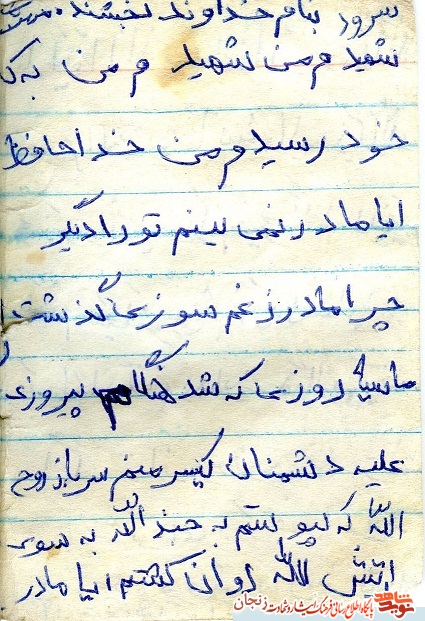 سرود بنام خداوند بخشنده مهربان
شهیدم من شهیدم من به
خود رسیدم من خداحافظ
ایا مادر نمی بینم تو را دگیر
چرا مادر زغم سوزی گذشت
سیاه روزی که شد هنگام پیروزی
علیه دشمنان منم سرباز روح
الله که پیوستم به جند الله به سوی
اتش روان گشتم ایا مادر
نوید شاهد پایگاه اطلاع رسانی فرهنگ ایثار و شهادت زنجان